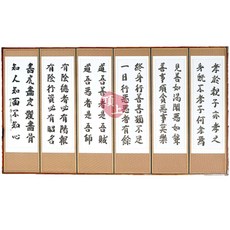 孝於親子亦孝之
身既不孝子何孝焉
見善如渴聞惡如聾
善事須貪惡事莫樂
終身行善善猶不足
一日行惡惡自有餘
道吾善者是吾賊
道吾惡者是吾師
有陰德者必有陽報
有陰行者必有昭名
畵虎畵皮難畵骨
知人知面不知心